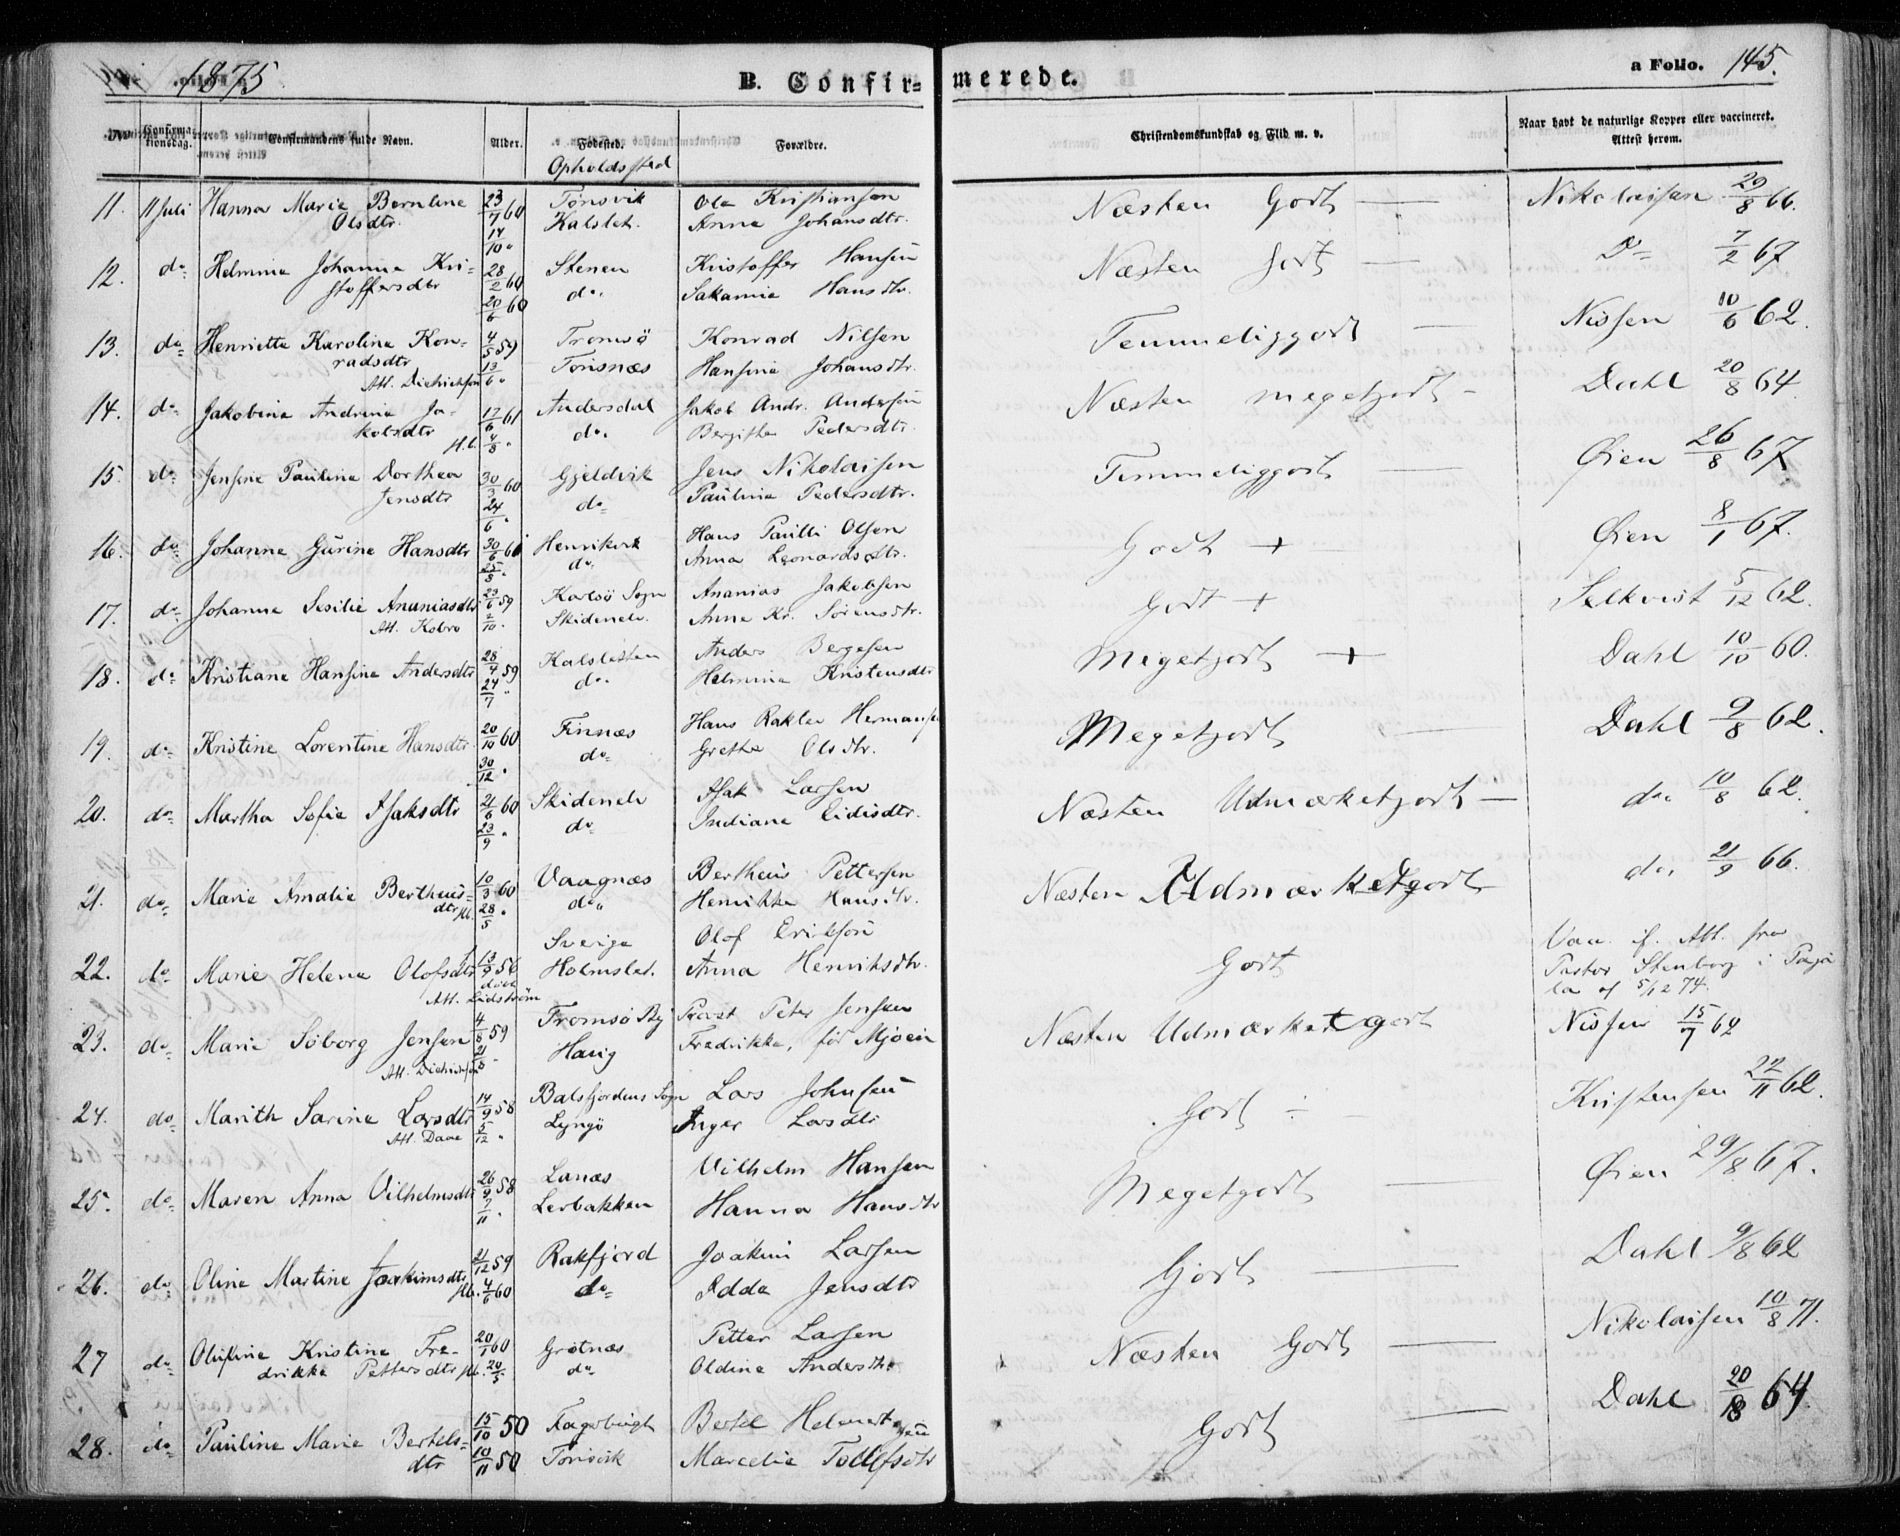 1875
B. Confirmerede.
a Folio. 145.
No
Confirmationsdag.
Confirmandens fulde Navn.
Alder.
Fødested.
Opholdssted
Forældre.
Christendomskundskab og Flid m. v.
Naar havt de naturlige Kopper eller vaccineret. Attest herom.
11. 11 Juli Hanna Marie Berntine 23/7 60 Tønsvik Ole Kristiansen Næsten Godt — Nikolaisen 29/8 66.
Olsdtr. 14/10 " Kalslet. Anne Johansdtr.
12. do Helmine Johanne Kri- 28/2 60 Stenen Kristoffer Hansen Næsten Godt — Do 7/2 67
stoffersdtr 20/6 60 do. Sakarine Hansdtr.
13. do Henriette Karoline Kon- 4/5 59 Tromsö Konrad Nilsen Temmeliggodt — Nissen 10/6 62.
radsdtr 13/6 " Tonsnæs Hansine Johansdtr.
Att. Diedrichsen
14. do Jakobine Andrine Ja- 17/6 61 Andersdal Jakob Andr. Andersen Næsten megetgodt - Dahl 20/8 64.
kobsdtr 4/8 " do. Bergithe Pedersdtr.
15. do Jensine Pauline Dorthea 30/3 60 Gjeldvik Jens Nikolaisen Temmeliggodt — Øien 26/8 67.
Jensdtr 24/6 " do Pauline Pedersdtr.
16. do Johanne Gurine Hansdtr 30/6 60 Henrikvik Hans Paulli Olsen Godt + Øien 8/1 67.
25/8 " do. Anna Leonardsdtr.
17. do Johanne Sesilie Ananiasdtr 23/6 59 Karlsö Sogn Ananias Jakobsen Godt + Selkvist 5/12 62.
Att. Kobro 2/10 " Skidenelv. Anne Kr. Sörensdtr.
18. do Kristiane Hansine Andersdtr 28/4 59 Kalsletten Anders Bergesen Megetgodt + Dahl 10/10 60.
24/7 " do. Helmine Kristensdtr
19. do Kristine Lorentine Hansdtr. 20/10 60 Finnæs Hans Rakler Hermansen Megetgodt — Dahl 9/8 62.
30/12 " do Grethe Olsdtr.
20. do Martha Sofie Isaksdtr 21/6 60 Skidenelv Isak Larsen Næsten Udmærketgodt — do. 10/8 62.
23/9 " do Indiane Eidisdtr.
21. do Marie Amalie Bertheus- 10/3 60 Vaagnæs Bertheus Pettersen Næsten Udmærketgodt do. 21/9 66.
dtr 28/5 " do. Henrikke Hansdtr.
22. do Marie Helene Olofsdtr 13/9 56 Sverige Olof Erikson Godt Vac. if. Att. fra
Att. Lidström Holmslet. Anna Henriksdtr. Pastor Stenborg i Paja-
la af 5/12 74.
23. do Marie Söborg Jensen 4/8 59 Tromsö By Provst Peter Jensen Næsten Udmærket godt Nissen 15/7 62
Att. Diedrichsen 21/8 Havig Fredrikke, før Mjøen
24. do Marith Sarine Larsdtr 14/9 58 Balsfjordens Sogn Lars Johnsen Godt ÷ Kristensen 22/11 62.
Att. Daae 5/12 " Lyngö Inger Larsdtr
25. do Maren Anna Vilhelmsdtr 26/9 58 Lanæs Vilhelm Hansen Megetgodt — Øien 29/8 67.
7/11 " Lerbakken Hanna Hansdtr
26. do Oline Martine Joakimsdtr 21/12 59 Rakfjord Joakim Larsen Godt — Dahl 9/8 62
4/6 60 do Edda Jensdtr
27 do Olufine Kristine Fre- 20/1 60 Grötnæs Petter Larsen Næsten Godt — Nikolaisen 10/8 71.
drikke Pettersdtr 20/5 do Oldine Andersdtr
28. do Pauline Marie Bertels- 15/10 50 Fagerbugt Bertel Helmertsen Godt — Dahl 20/8 64.
dtr 10/11 50 Tønsvik Marcelie Tollefsdtr